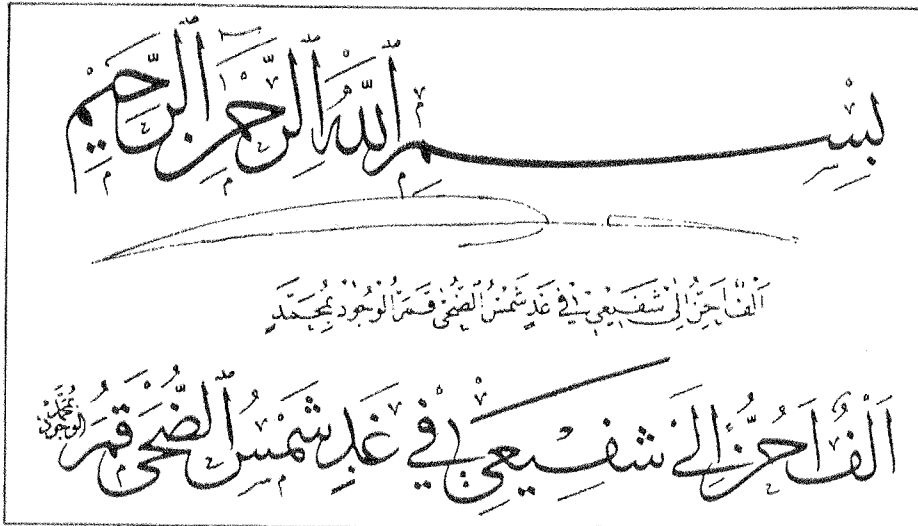 بِسْمِ ٱللَّهِ ٱلرَّحْمَٰنِ ٱلرَّحِيمِ
اَلْفٌ اَحِنُّ اِلَى شَفِيعِي فِي غَدٍ شَمْسُ الضُّحَى قَمَرُ الْوُجُودِ مُحَمَّدٍ
اَلْفٌ اَحِنُّ اِلَى شَفِيعِي فِي غَدٍ شَمْسُ الضُّحَى قَمَرُ الْوُجُودِ مُحَمَّدٍ